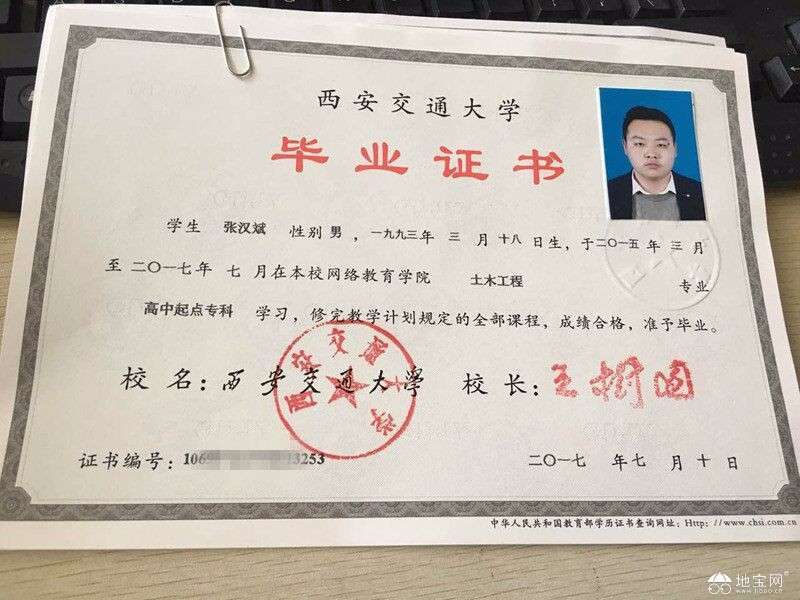 西安交通大学
毕业证书
学生 张汉斌 性别 男，一九九三年 三 月 十八 日生，于二〇一五年 三 月
至 二〇一七年 七 月在本校网络教育学院 土木工程 专业
高中起点专科 学习，修完教学计划规定的全部课程，成绩合格，准予毕业。
校 名：西安交通大学 校 长：王树国
西安交通大学
证书编号：1069 3253
二〇一七 年 七 月 十 日
中华人民共和国教育部学历证书查询网址：Http：//www.chsi.com.cn
地宝网